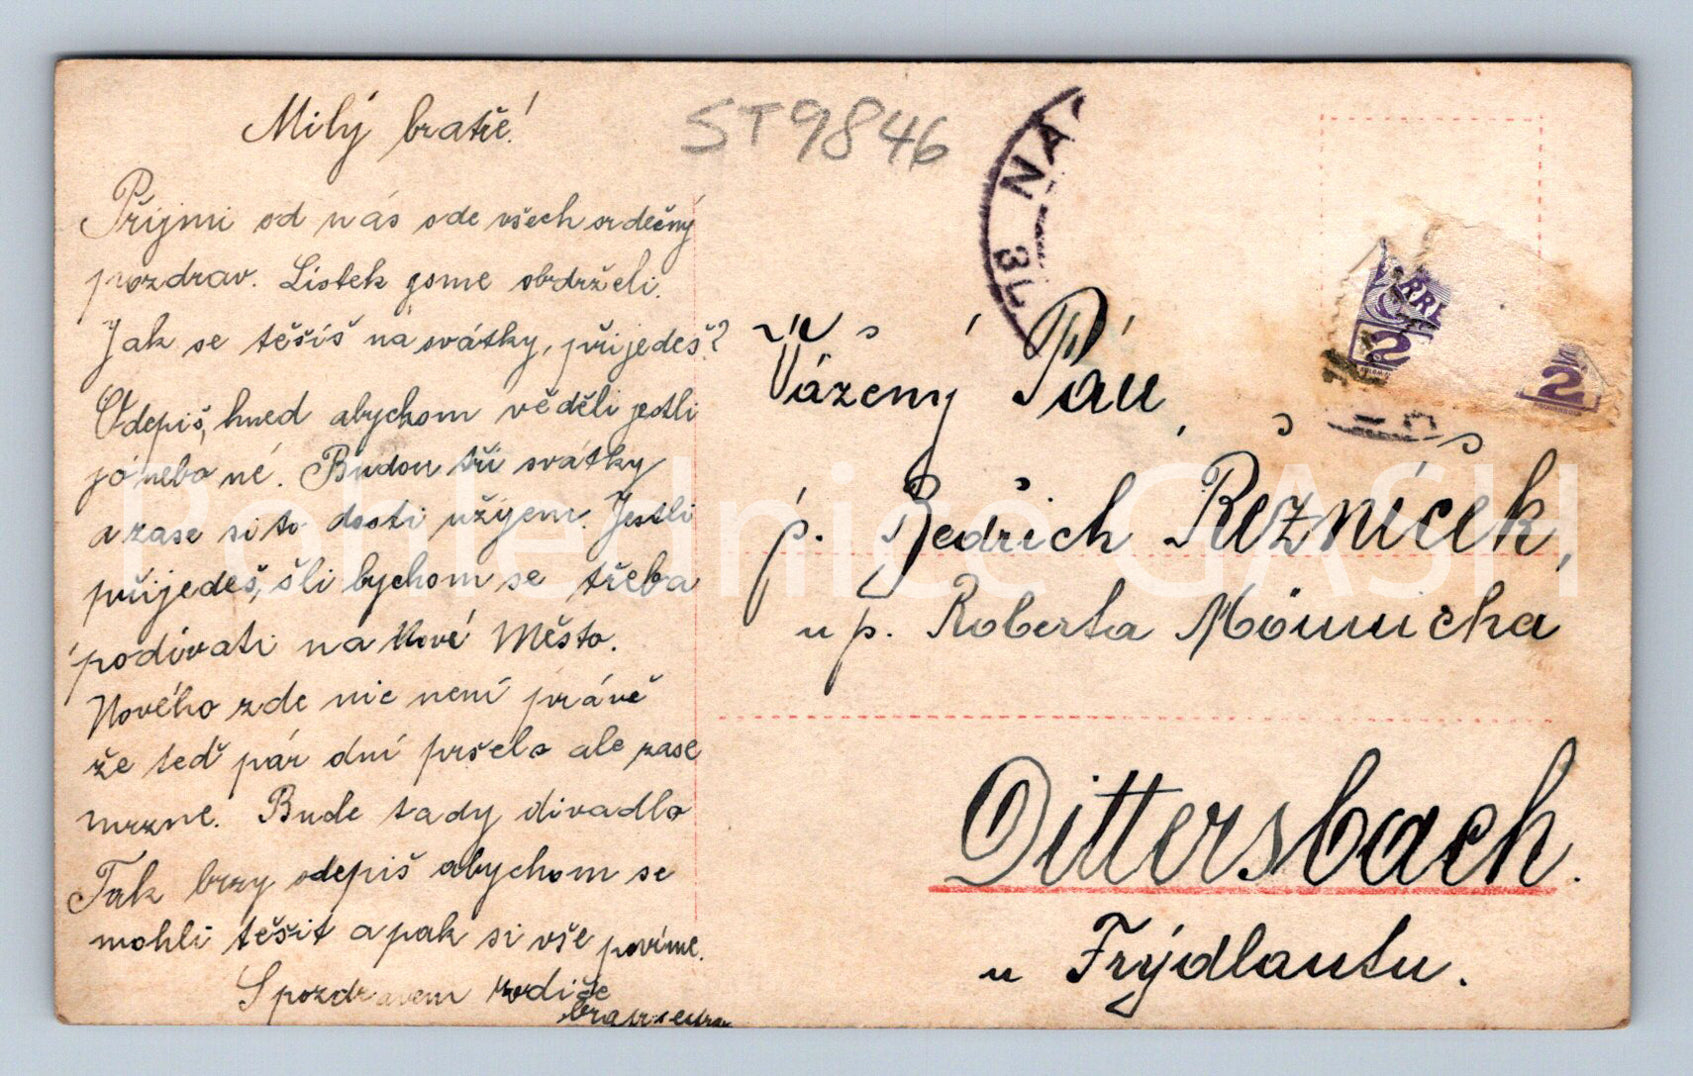 Milý bratře!
Přijmi od nás ode všech srdečný
pozdrav. Lístek jsme obdrželi.
Jak se těšíš na svátky, přijedeš?
Odepiš, hned abychom věděli jestli
jó nebo né. Budou tří svátky
a zase si to dosti užijem. Jestli
přijedeš, šli bychom se třeba
podívati na Nové Město.
Nového zde nic není právě
že teď pár dní pršelo ale zase
mrzne. Bude tady divadlo
Tak brzy odepiš abychom se
mohli těšit a pak si vše povíme.
S pozdravem rodiče
bratr sestra
ST9846
NA
RRE
2
2
Vážený Pán
p. Bedřich Řezníček,
u p. Roberta
Dittersbach.
u Frýdlantu.
Pohlednice GASH